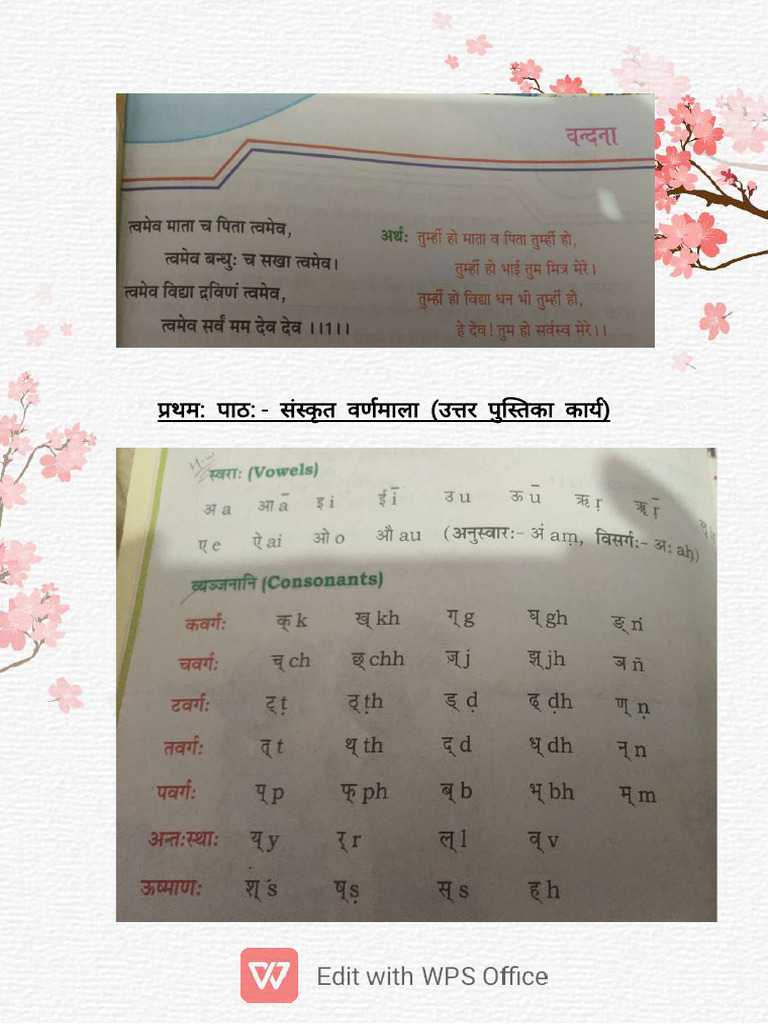 वन्दना
त्वमेव माता च पिता त्वमेव,
त्वमेव बन्धुः च सखा त्वमेव।
त्वमेव विद्या द्रविणं त्वमेव,
त्वमेव सर्वं मम देव देव ।।1।।
अर्थः तुम्हीं हो माता व पिता तुम्हीं हो,
तुम्हीं हो भाई तुम मित्र मेरे।
तुम्हीं हो विद्या धन भी तुम्हीं हो,
हे देव! तुम हो सर्वस्व मेरे।।
प्रथमः पाठः- संस्कृत वर्णमाला (उत्तर पुस्तिका कार्य)
H.W
स्वराः (Vowels)
अ a आ ā इ i ई ī उ u ऊ ū ऋ ṛ ॠ ṝ
ए e ऐ ai ओ o औ au (अनुस्वारः- अं aṃ, विसर्गः- अः aḥ)
व्यञ्जनानि (Consonants)
कवर्गः क् k ख् kh ग् g घ् gh ङ् ṅ
चवर्गः च् ch छ् chh ज् j झ् jh ञ ñ
टवर्गः ट् ṭ ठ् ṭh ड् ḍ ढ् ḍh ण् ṇ
तवर्गः त् t थ् th द् d ध् dh न् n
पवर्गः प् p फ् ph ब् b भ् bh म् m
अन्तःस्थाः य् y र् r ल् l व् v
ऊष्माणः श् ś ष् ṣ स् s ह् h
Edit with WPS Office